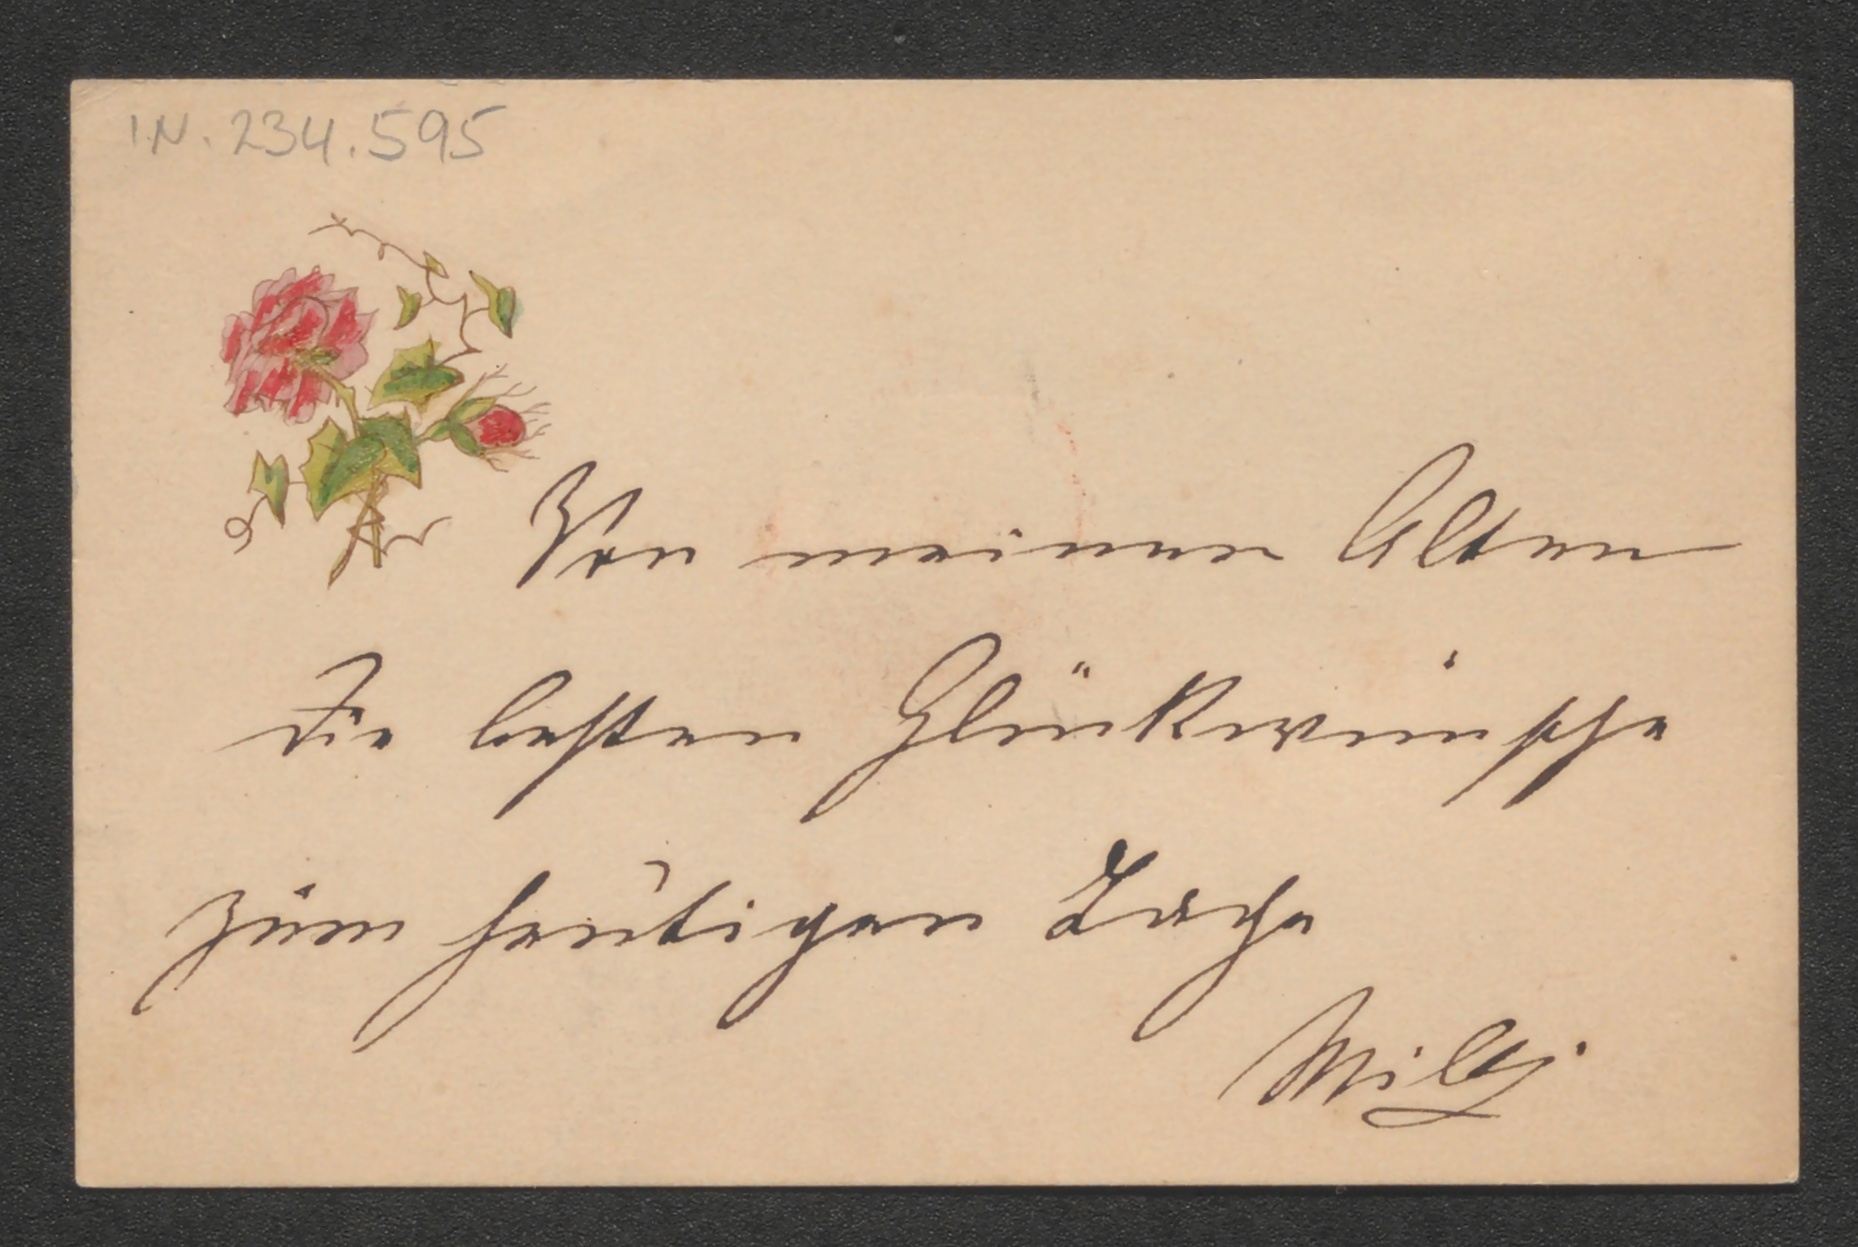 I.N. 234.595
Von meinen Alten
die besten Glückwünsche
zum heutigen Tage